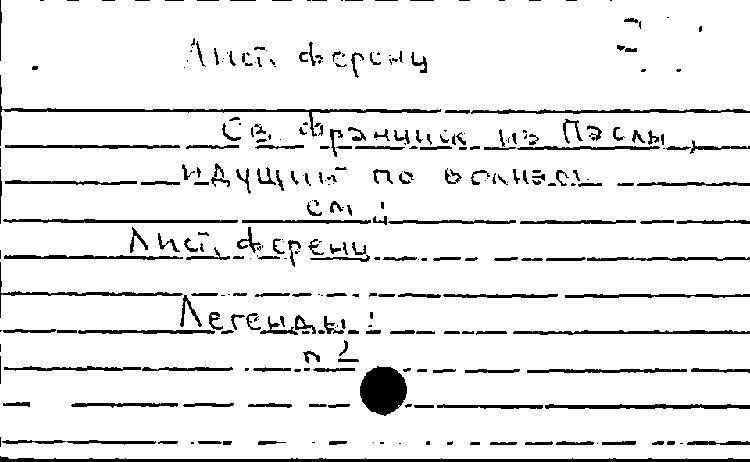 Лист, Ференц
Св. Франциск из Паолы,
идущий по волнам
см.:
Лист, Ференц
Легенды:
n 2